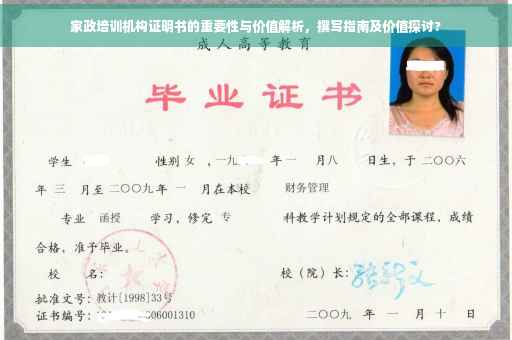 家政培训机构证明书的重要性与价值解析，撰写指南及价值探讨？
成人高等教育
毕业证书
学生 性别 女 ，一九 年 一 月 八 日生，于二〇〇六
年 三 月至二〇〇九年 一 月在本校 财务管理
专业 函授 学习，修完 专 科教学计划规定的全部课程，成绩
合格，准予毕业。
校 名： 校（院）长：
批准文号：教计[1998]33号
证书编号： 6006001310 二〇〇九 年 一 月 十 日